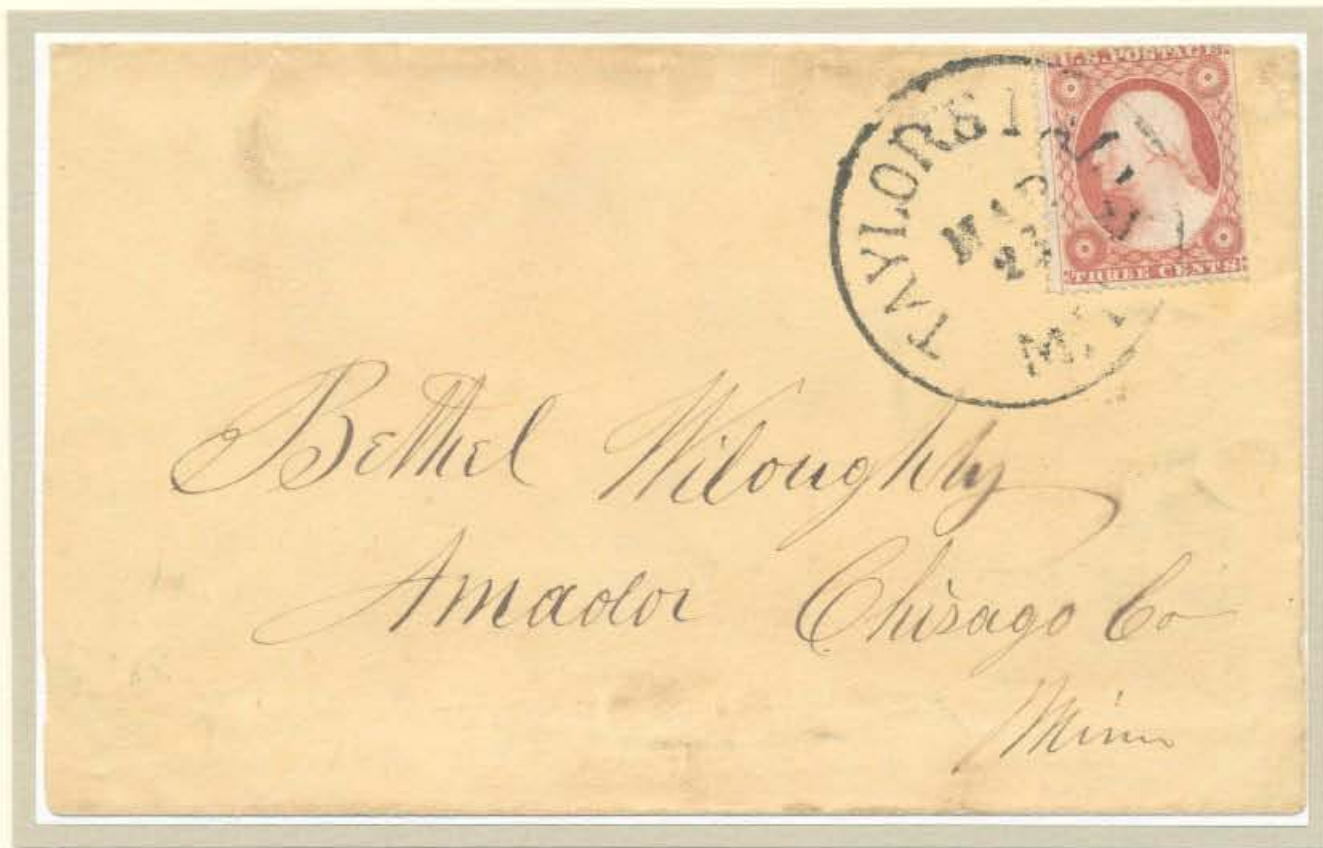 U.S. POSTAGE
THREE CENTS
TAYLORS
MAR
Bethel Wiloughby
Amador Chisago Co
Minn